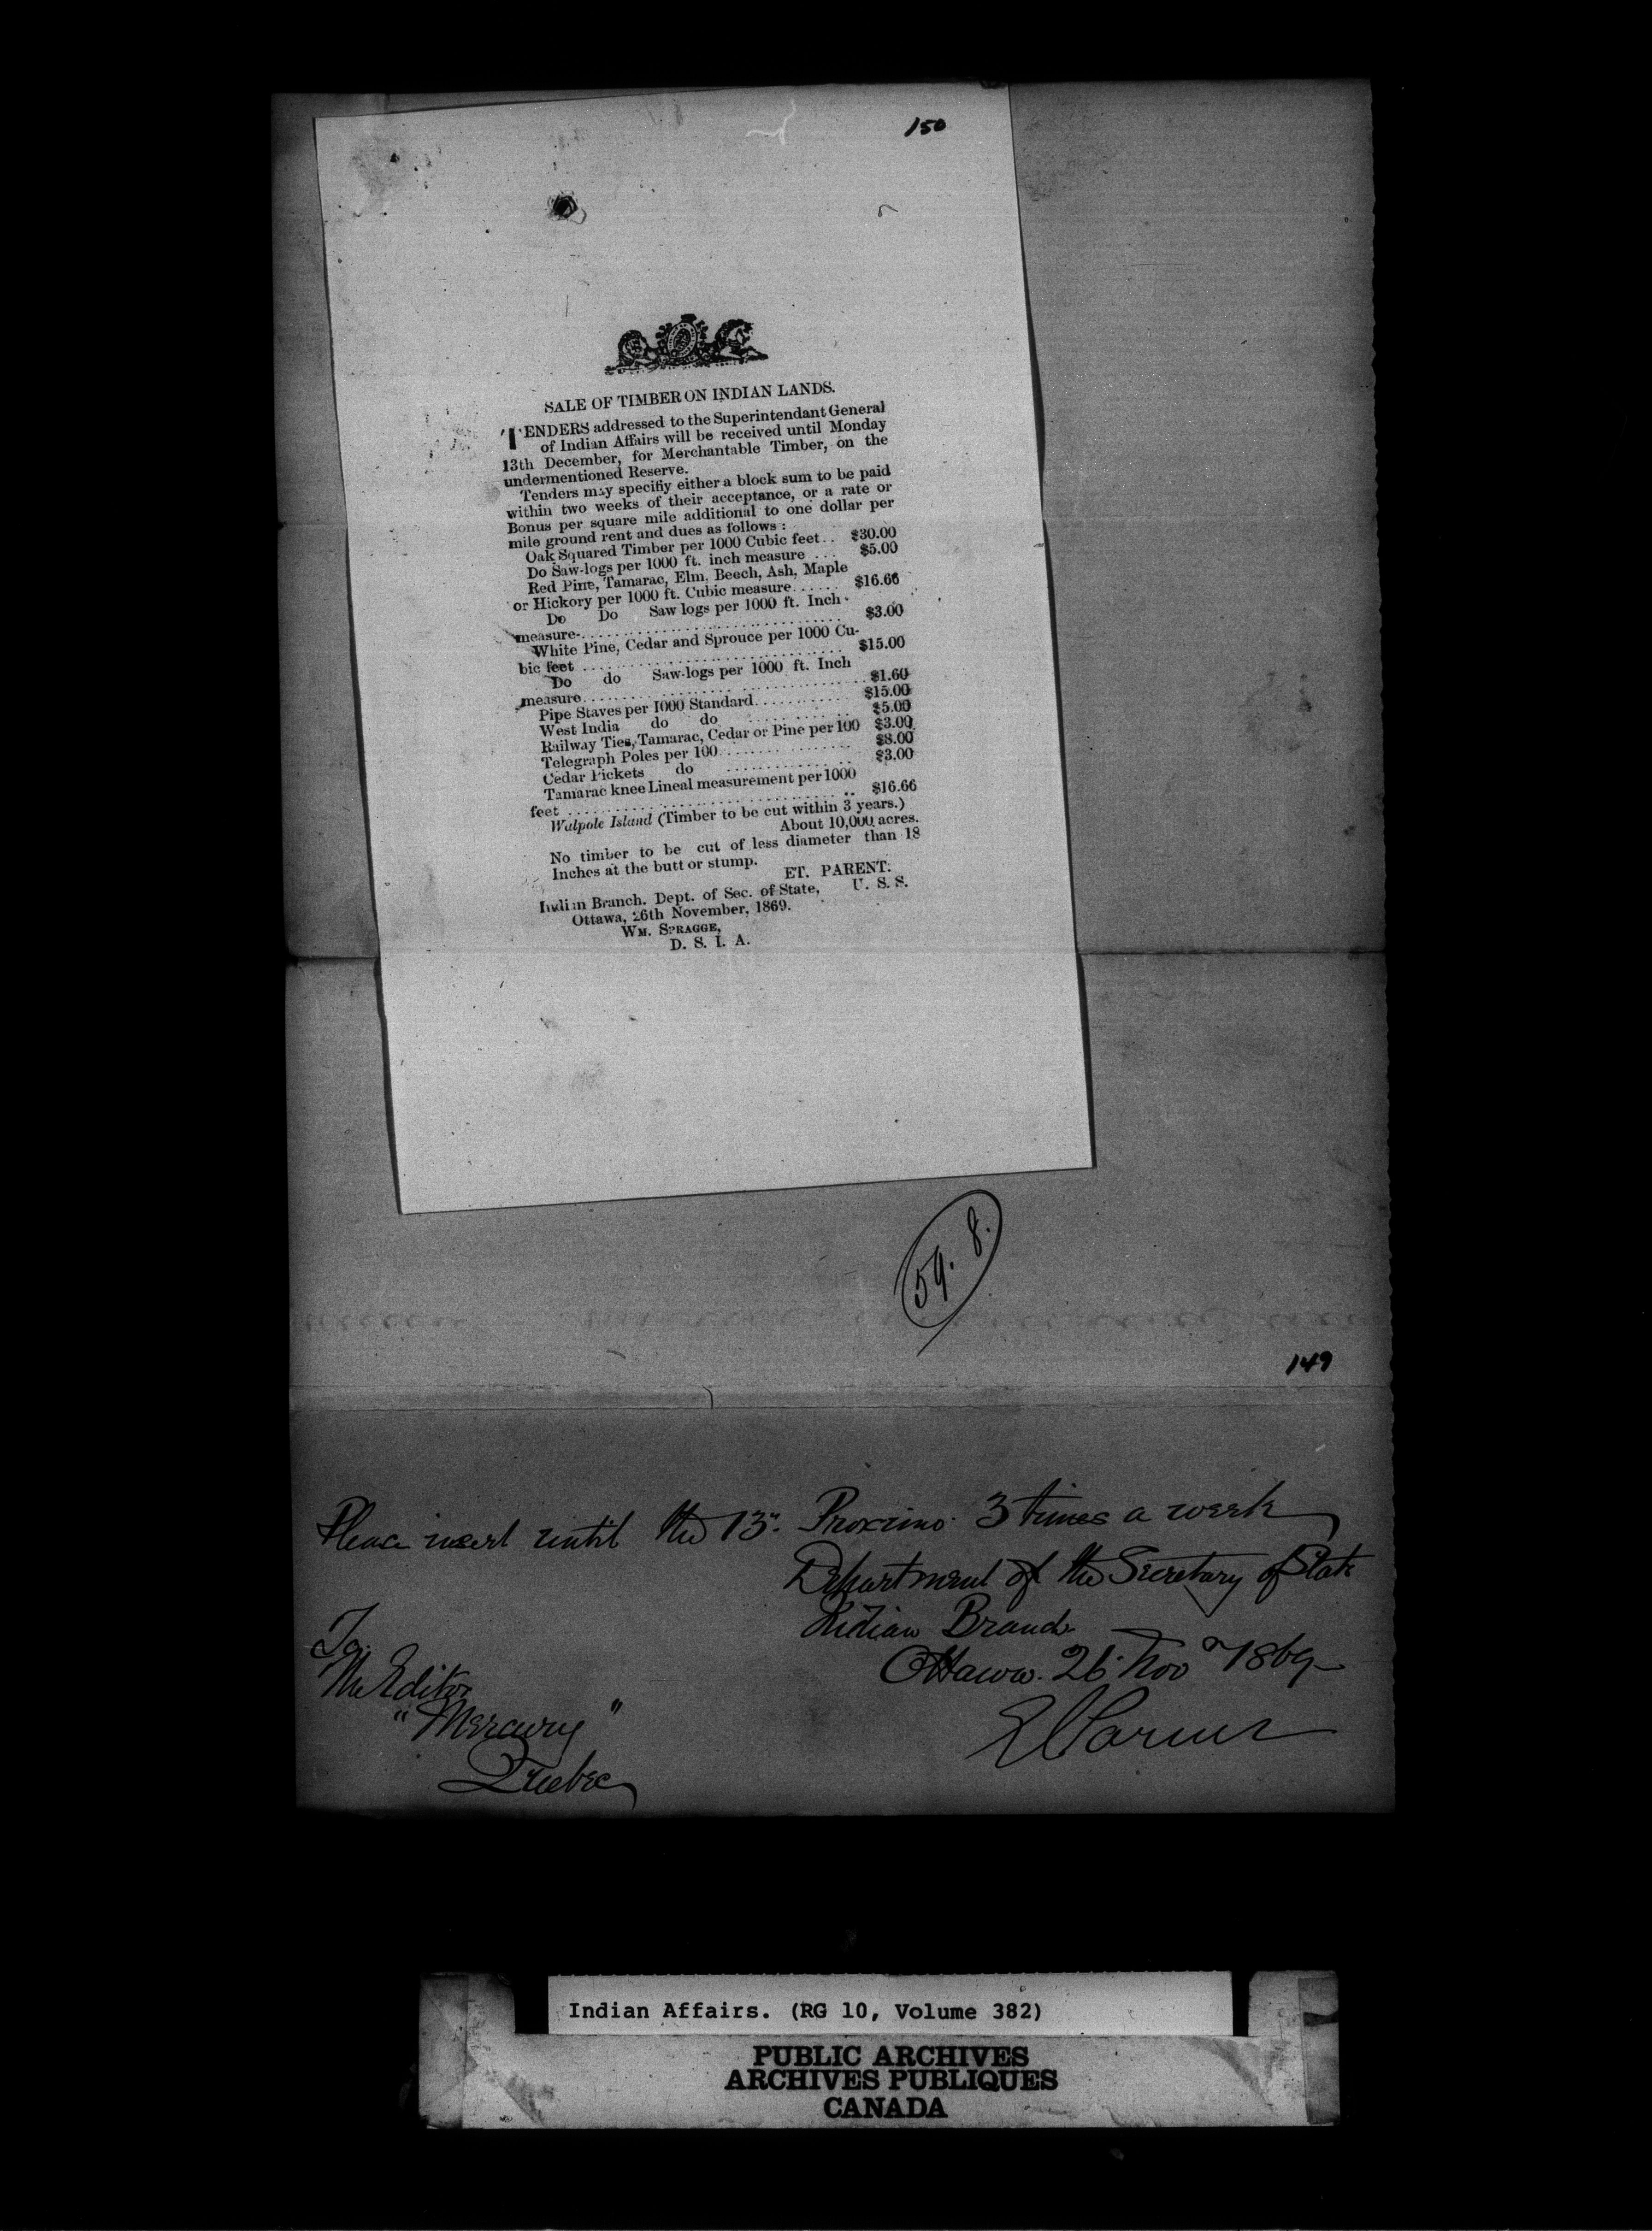 150
SALE OF TIMBER ON INDIAN LANDS.
TENDERS addressed to the Superintendant General
of Indian Affairs will be received until Monday
13th December, for Merchantable Timber, on the
undermentioned Reserve.
Tenders may specifiy either a block sum to be paid
within two weeks of their acceptance, or a rate or
Bonus per square mile additional to one dollar per
mile ground rent and dues as follows :
Oak Squared Timber per 1000 Cubic feet.. $30.00
Do Saw-logs per 1000 ft. inch measure ... $5.00
Red Pine, Tamarac, Elm, Beech, Ash, Maple
or Hickory per 1000 ft. Cubic measure...... $16.66
Do Do Saw logs per 1000 ft. Inch
measure................................ $3.00
White Pine, Cedar and Sprouce per 1000 Cu-
bic feet ................................ $15.00
Do do Saw-logs per 1000 ft. Inch
measure................................ $1.60
Pipe Staves per 1000 Standard........... $15.00
West India do do ........... $5.00
Railway Ties, Tamarac, Cedar or Pine per 100 $3.00
Telegraph Poles per 100................ $8.00
Cedar Pickets do ................ $3.00
Tamarac knee Lineal measurement per 1000
feet ................................ $16.66
Walpole Island (Timber to be cut within 3 years.)
About 10,000 acres.
No timber to be cut of less diameter than 18
Inches at the butt or stump.
ET. PARENT.
U. S. S.
Indian Branch. Dept. of Sec. of State,
Ottawa, 26th November, 1869.
WM. SPRAGGE,
D. S. I. A.
59. 8.
149
Please insert until the 13th. Proximo 3 times a week
Department of the Secretary of State
Indian Branch
Ottawa. 26. Nov 1869
To
The Editor
"Mercury"
Quebec
EtParent
Indian Affairs. (RG 10, Volume 382)
PUBLIC ARCHIVES
ARCHIVES PUBLIQUES
CANADA